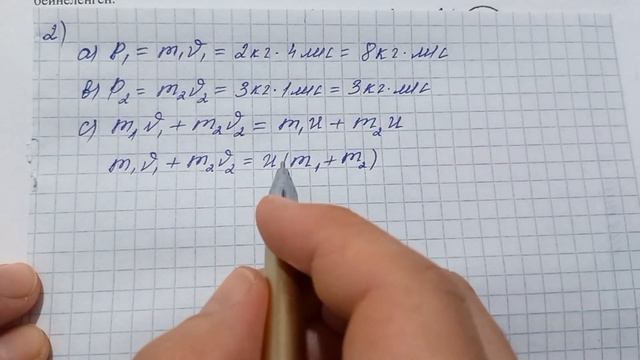 бейнеленген.
2)
a) P₁ = m₁ϑ₁ = 2кг · 4м/с = 8кг · м/с
в) P₂ = m₂ϑ₂ = 3кг · 1м/с = 3кг · м/с
c) m₁ϑ₁ + m₂ϑ₂ = m₁u + m₂u
m₁ϑ₁ + m₂ϑ₂ = u(m₁ + m₂)